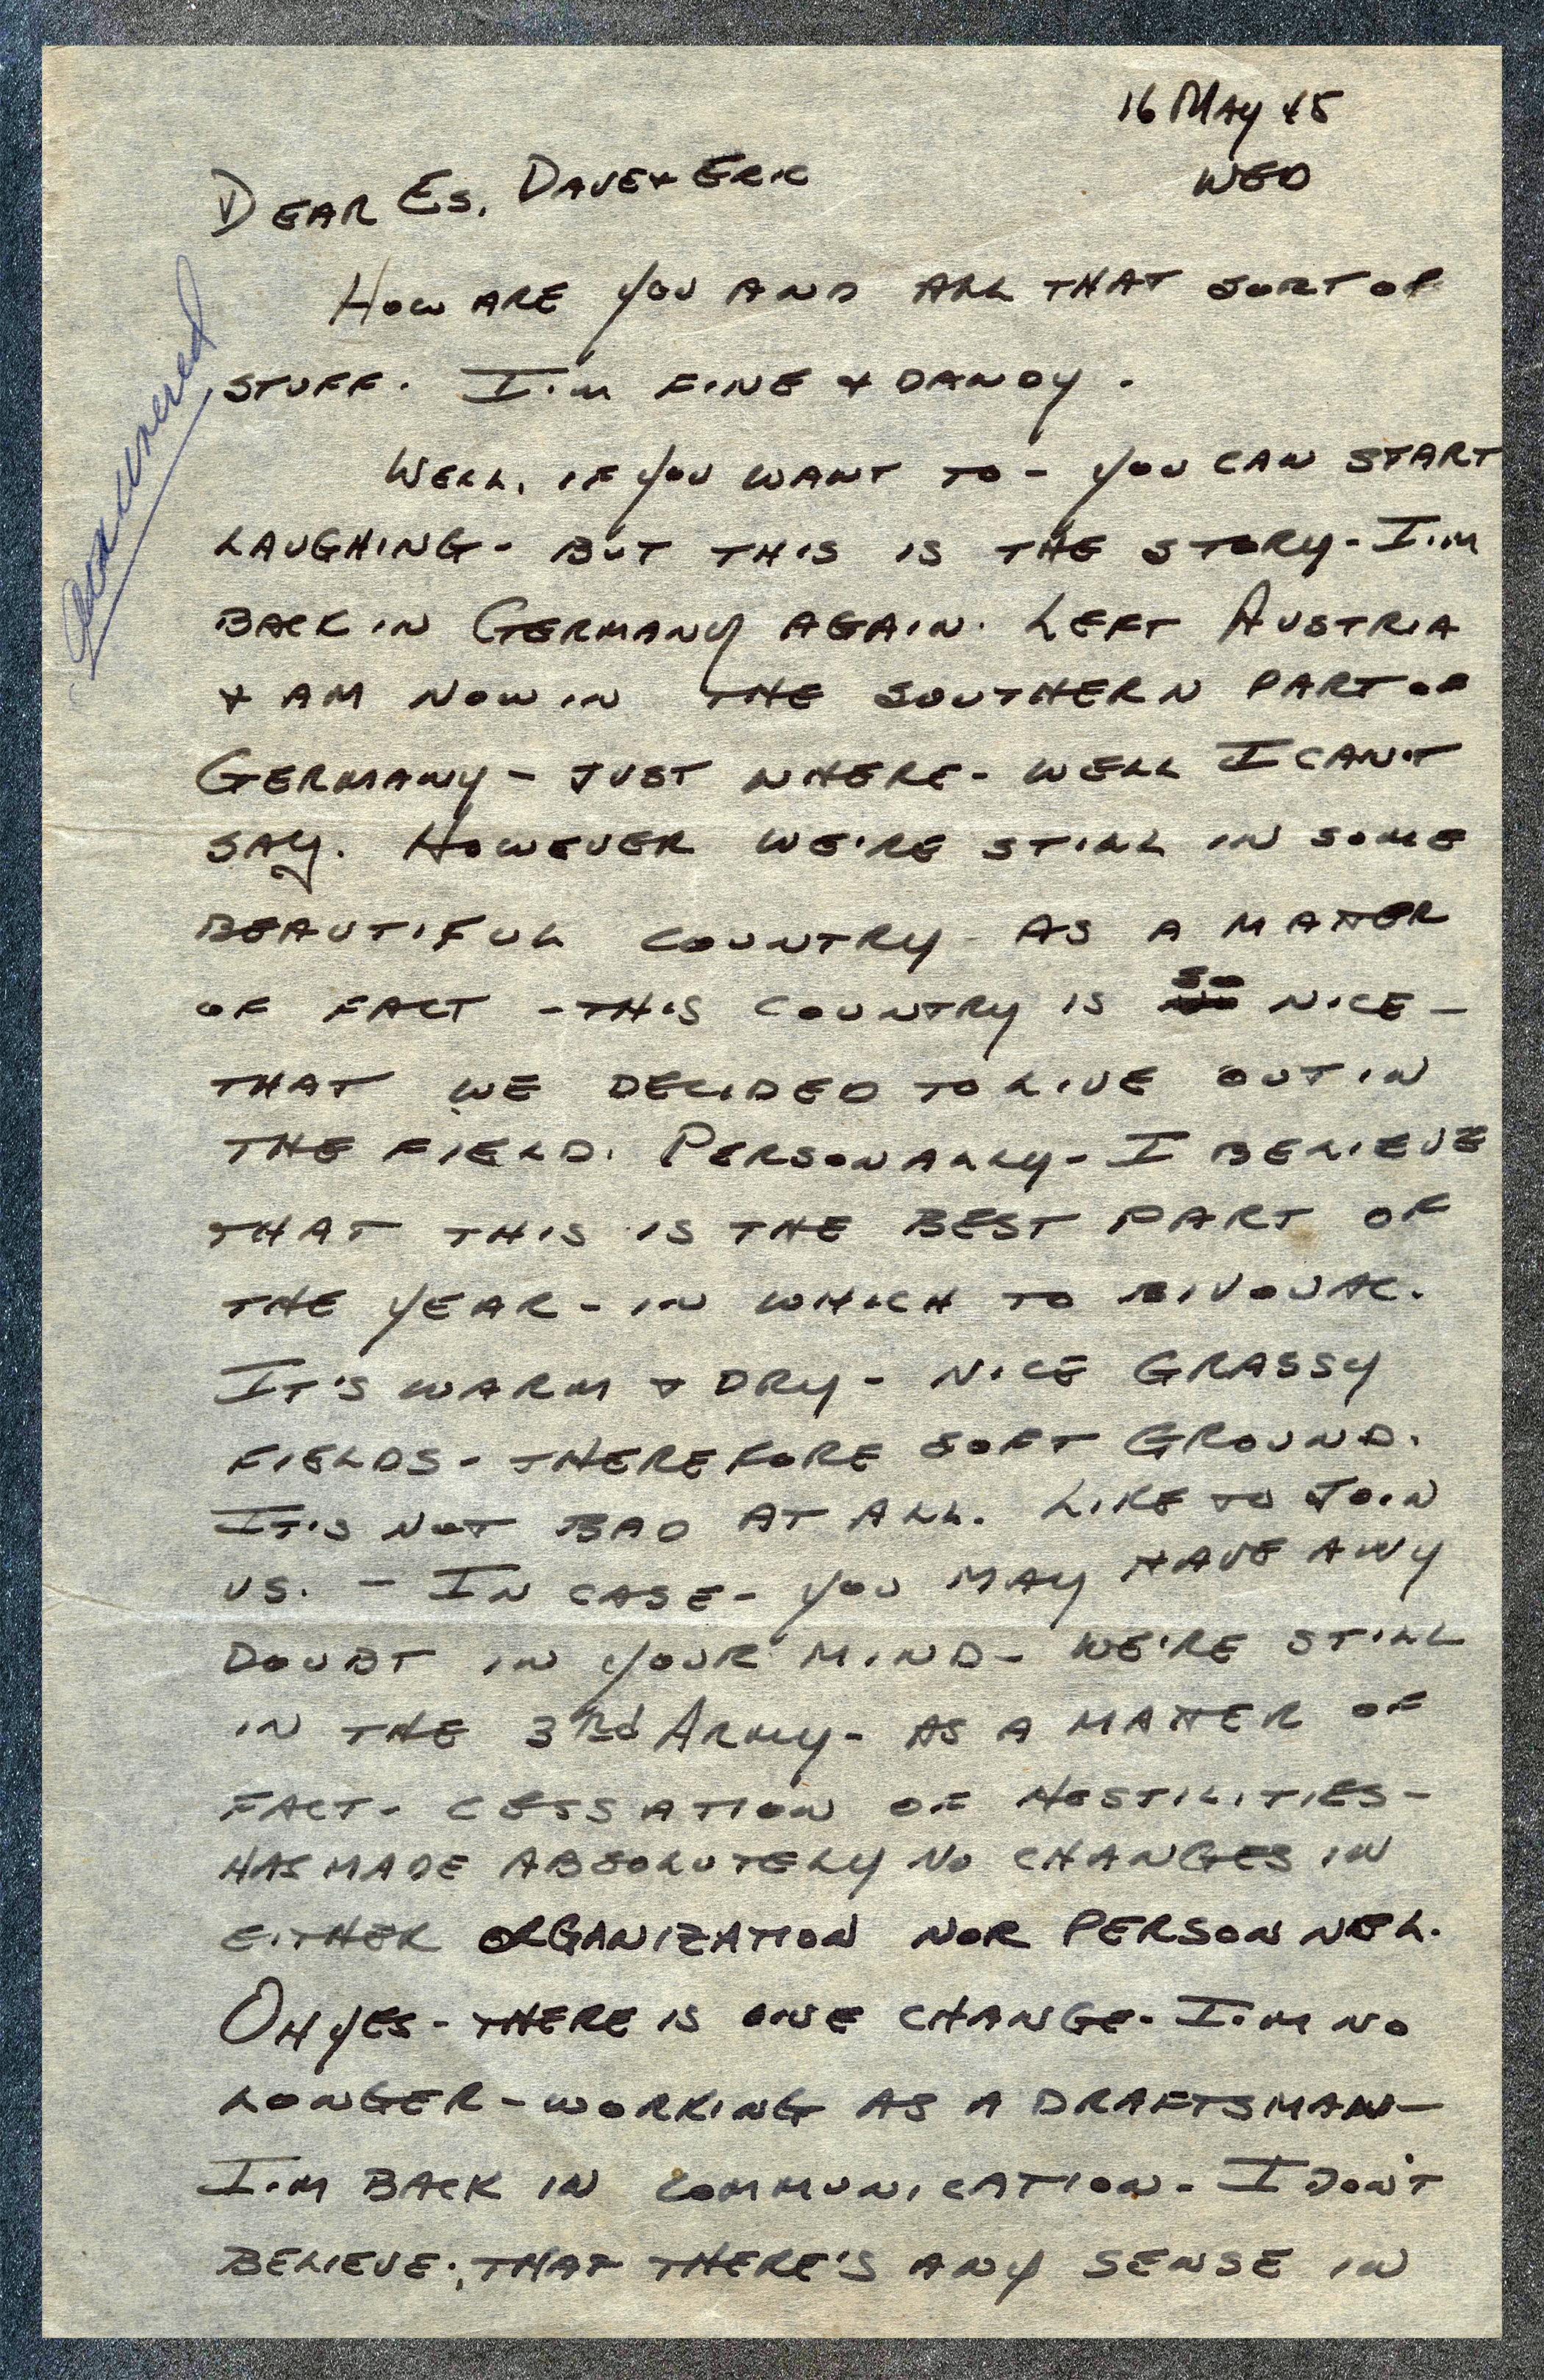 16 MAY 45
WED
DEAR ES, DAVE & ERIC
answered
HOW ARE YOU AND ALL THAT SORT OF
STUFF. I'M FINE & DANDY.
WELL, IF YOU WANT TO - YOU CAN START
LAUGHING - BUT THIS IS THE STORY - I'M
BACK IN GERMANY AGAIN. LEFT AUSTRIA
& AM NOW IN THE SOUTHERN PART OF
GERMANY - JUST WHERE - WELL I CAN'T
SAY. HOWEVER WE'RE STILL IN SOME
BEAUTIFUL COUNTRY - AS A MATTER
OF FACT - THIS COUNTRY IS SO NICE -
THAT WE DECIDED TO LIVE OUT IN
THE FIELD. PERSONALLY - I BELIEVE
THAT THIS IS THE BEST PART OF
THE YEAR - IN WHICH TO BIVOUAC.
IT'S WARM & DRY - NICE GRASSY
FIELDS - THEREFORE SOFT GROUND.
IT'S NOT BAD AT ALL. LIKE TO JOIN
US. - IN CASE - YOU MAY HAVE ANY
DOUBT IN YOUR MIND - WE'RE STILL
IN THE 3rd ARMY - AS A MATTER OF
FACT - CESSATION OF HOSTILITIES -
HAS MADE ABSOLUTELY NO CHANGES IN
EITHER ORGANIZATION NOR PERSONNEL.
OH YES - THERE IS ONE CHANGE - I'M NO
LONGER - WORKING AS A DRAFTSMAN -
I'M BACK IN COMMUNICATION - I DON'T
BELIEVE, THAT THERE'S ANY SENSE IN